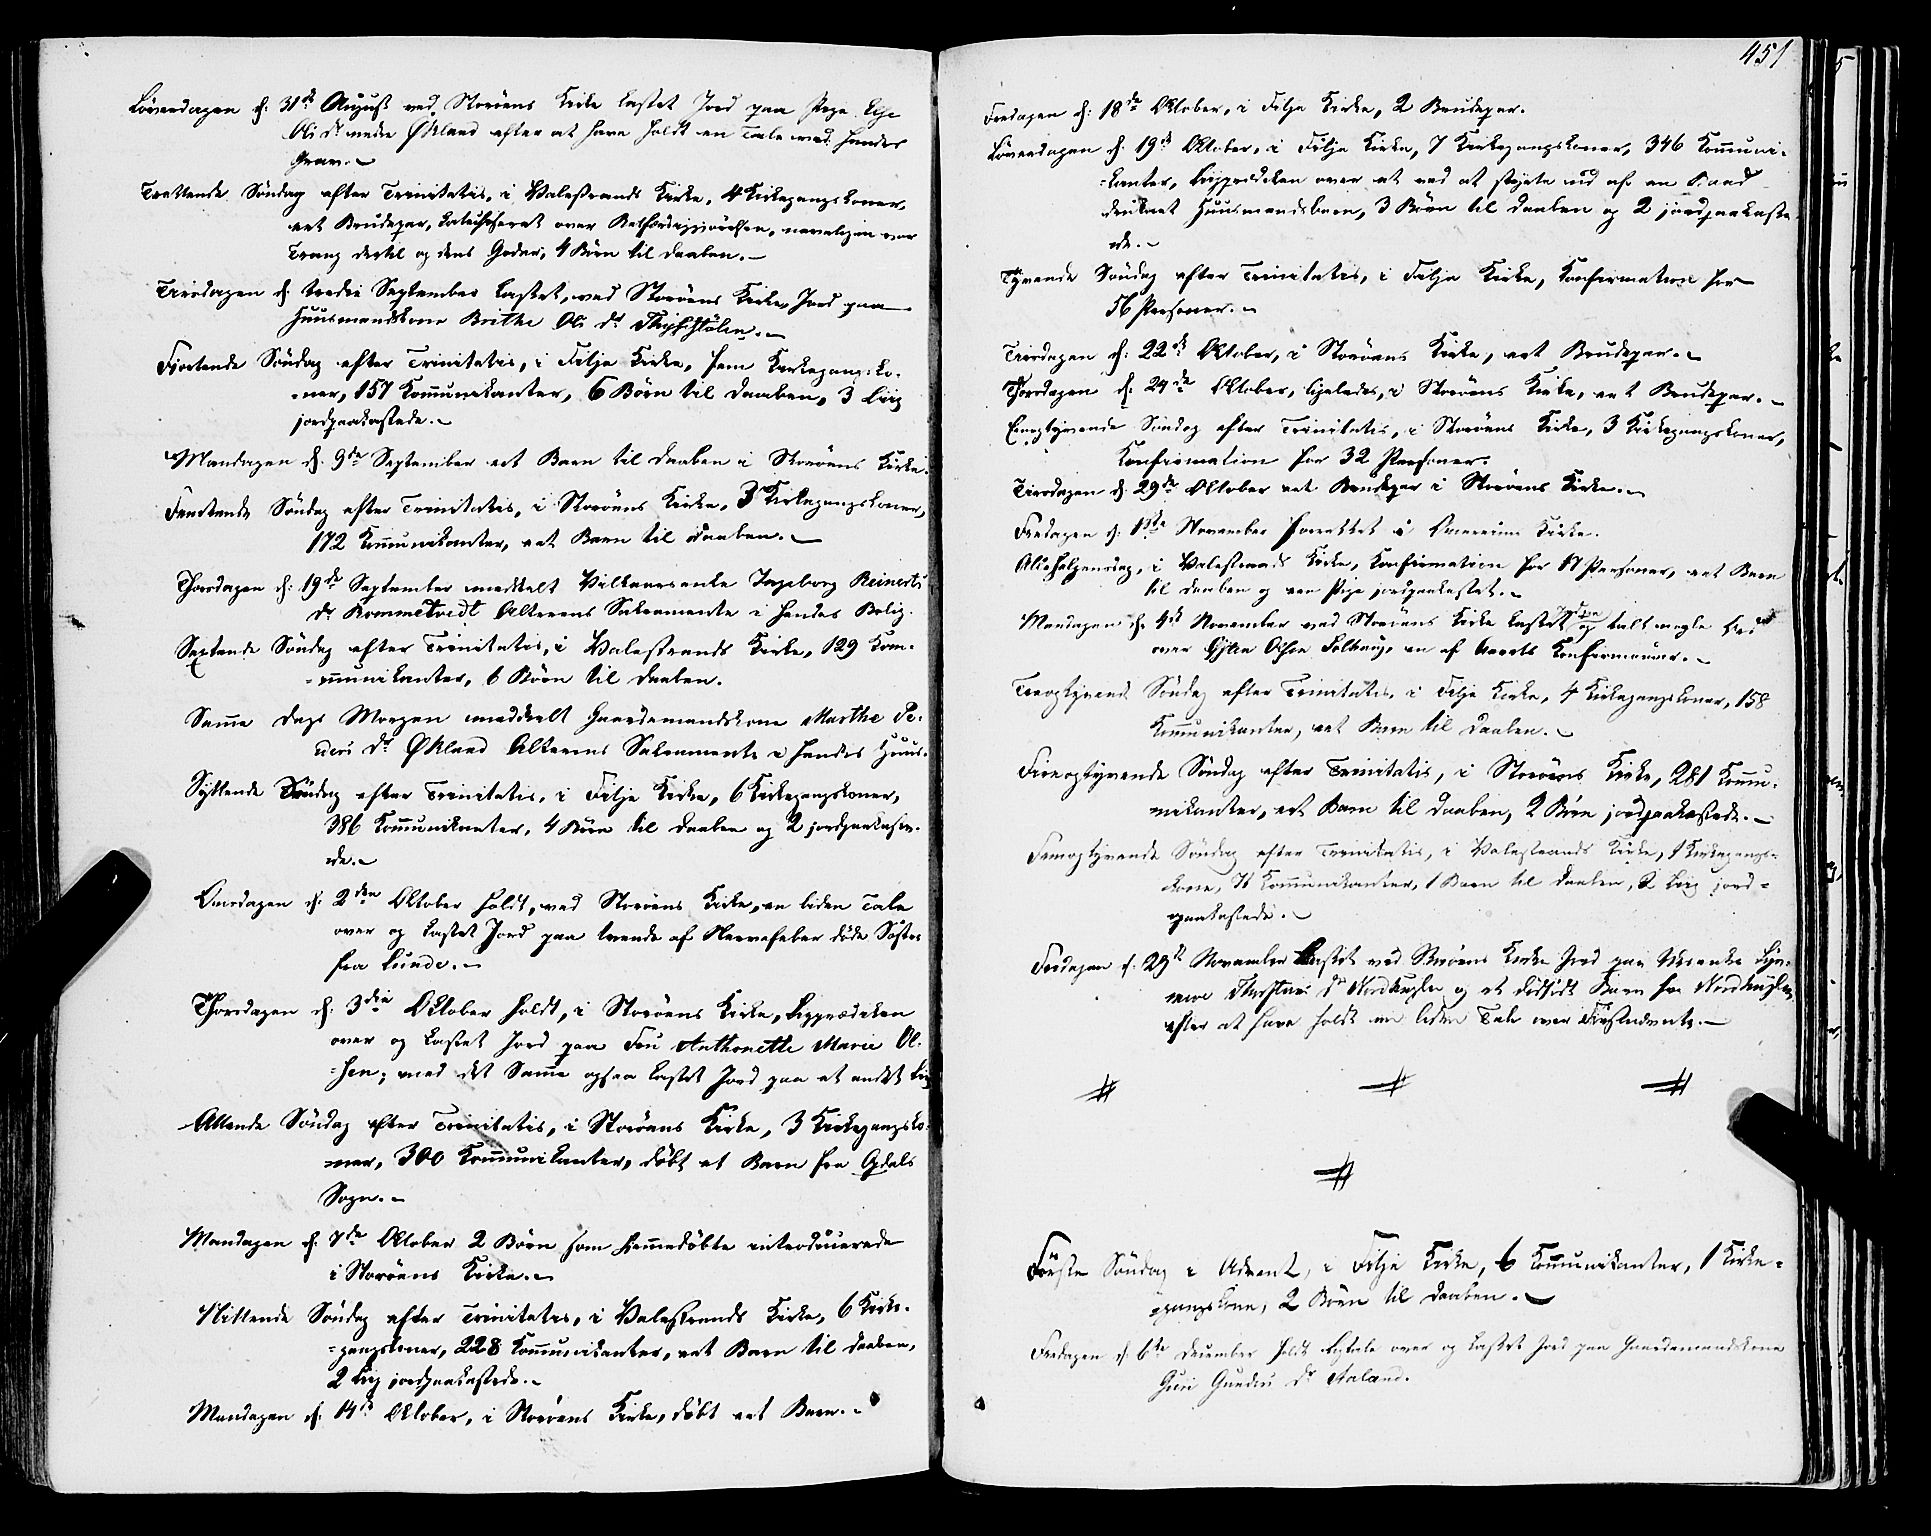 Löverdagen d: 31te August ved Storöens Kirke kastet Jord paa Pige Elje
Ols Dr nedre Økland efter at have holdt en Tale ved hendes
Grav.
Trettende Söndag efter Trinitatis, i Valestrands Kirke, 4 Kirkegangskoner,
eet Brudepar, katechiseret over Retfærdiggjörelsen, nemligen vor
Trang dertil og dens Goder, 4 Börn til Daaben.
Tirsdagen d: tredie September kastet, ved Storöens Kirke, Jord paa
Huusmandskone Brithe Ols Dr
Fjortende Söndag efter Trinitatis, i Fitje Kirke, fem Kirkegangsko-
=ner, 157 Kommunikanter, 6 Börn til Daaben, 3 Liig
jordpaakastede.
Mandagen d: 9de September eet Barn til Daaben i Storöens Kirke.
Femtende Söndag efter Trinitatis, i Storöens Kirke, 3 Kirkegangskoner,
172 Kommunikanter, eet Barn til Daaben.
Thorsdagen d: 19de September meddelt Vilkaarsenke Ingeborg Reinerts
Dr Rommetvedt Alterens Sakramente i hendes Bolig.
Sextende Söndag efter Trinitatis, i Valestrands Kirke, 129 Kom-
=munikanter, 6 Börn til Daaben.
Samme Dags Morgen meddeelt Gaardemandskone Marthe Pe-
ders Dr Økland Alterens Sakramente i hendes Huus.
Syttende Söndag efter Trinitatis, i Fitje Kirke, 6 Kirkegangskoner,
386 Kommunikanter, 4 Börn til Daaben og 2 jordpaakast-
ede.
Onsdagen d: 2den Oktober holdt, ved Storöens Kirke, en liden Tale
over og kastet Jord paa tvende af Nervefeber döde Söstre
fra Lunde.
Thorsdagen d: 3die Oktober holdt, i Storöens Kirke, Liigprædiken
over og kastet Jord paa Fru Anthonette Marie Ol-
=sen; med det Samme ogsaa kastet Jord paa et andet Liig
Attende Söndag efter Trinitatis, i Storöens Kirke, 3 Kirkegangsko-
=ner, 300 Kommunikanter, döbt et Barn fra Opdals
Sogn.
Mandagen d: 7de Oktober 2 Börn som hjemmedöbte introducerede
i Storöens Kirke.
Nittende Söndag efter Trinitatis, i Valestrands Kirke, 6 Kirke-
=gangskoner, 228 Kommunikanter, eet Barn til Daaben,
2 Liig jordpaakastede.
Mandagen d: 14de Oktober, i Storöens Kirke, döbt eet Barn.
451
Fredagen d: 18de Oktober, i Fitje Kirke, 2 Brudepar.
Löverdagen d: 19de Oktober, i Fitje Kirke, 7 Kirkegangskoner, 346 Kommuni-
=kanter, Liigprædiken over et ved at styrte ud af en Baad
druknet Huusmandsbarn, 3 Börn til Daaben og 2 jordpaakaste-
de.
Tyvende Söndag efter Trinitatis, i Fitje Kirke, Konfirmation for
56 Personer.
Tirsdagen d: 22de Oktober, i Storöens Kirke, eet Brudepar.
Thorsdagen d: 24de Oktober, ligeledes, i Storöens Kirke, eet Brudepar.
Eenogtyvende Söndag efter Trinitatis, i Storöens Kirke, 3 Kirkegangskoner,
Konfirmation for 32 Personer.
Tirsdagen d: 29de Oktober eet Brudepar i Storöens Kirke.
Fredagen d: 1ste November forrettet i Kirke.
Allehelgensdag, i Valestrands Kirke, Konfirmation for 17 Personer, eet Barn
til Daaben og een Pige jordpaakastet.
Mandagen d: 4de November ved Storöens Kirke kastet Jord paa og talt nogle Ord
over Gjtle Olsen Solberg, en af Aarets Konfirmanter.
Treogtyvende Söndag efter Trinitatis, i Fitje Kirke, 4 Kirkegangskoner, 158
Kommunikanter, eet Barn til Daaben.
Fireogtyvende Söndag efter Trinitatis, i Storöens Kirke, 281 Kommu-
nikanter, eet Barn til Daaben, 2 Börn jordpaakastede.
Femogtyvende Söndag efter Trinitatis, i Valestrands Kirke, 1 Kirkegangs=
kone, 71 Kommunikanter, 1 Barn til Daaben, 2 Liig jord=
paakastede.
Fredagen d: 29de November kastet ved Storöens Kirke Jord paa
Dr Nordhuglen og et dödfödt Barn fra Nordhuglen
efter at have holdt en liden Tale over Förstnævnte.
Förste Söndag i Advent, i Fitje Kirke, 6 Kommunikanter, 1 Kirke=
gangskone, 2 Börn til Daaben.
Fredagen d: 6te December holdt Ligtale over og kastet Jord paa Gaardemandskone
Guri Gunders Dr Aaland.